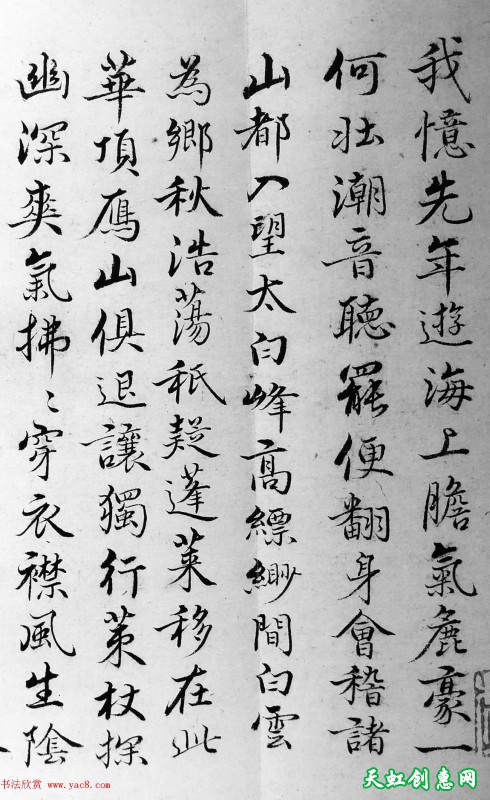 我憶先年遊海上膽氣麁豪一
何壯潮音聽罷便翻身會稽諸
山都入望太白峰高縹緲間白雲
為鄉秋浩蕩秖疑蓬萊移在此
華頂鴈山俱退讓獨行策杖探
幽深爽氣拂〻穿衣襟風生陰
书法欣赏 www.yac8.com
天虹创惠网